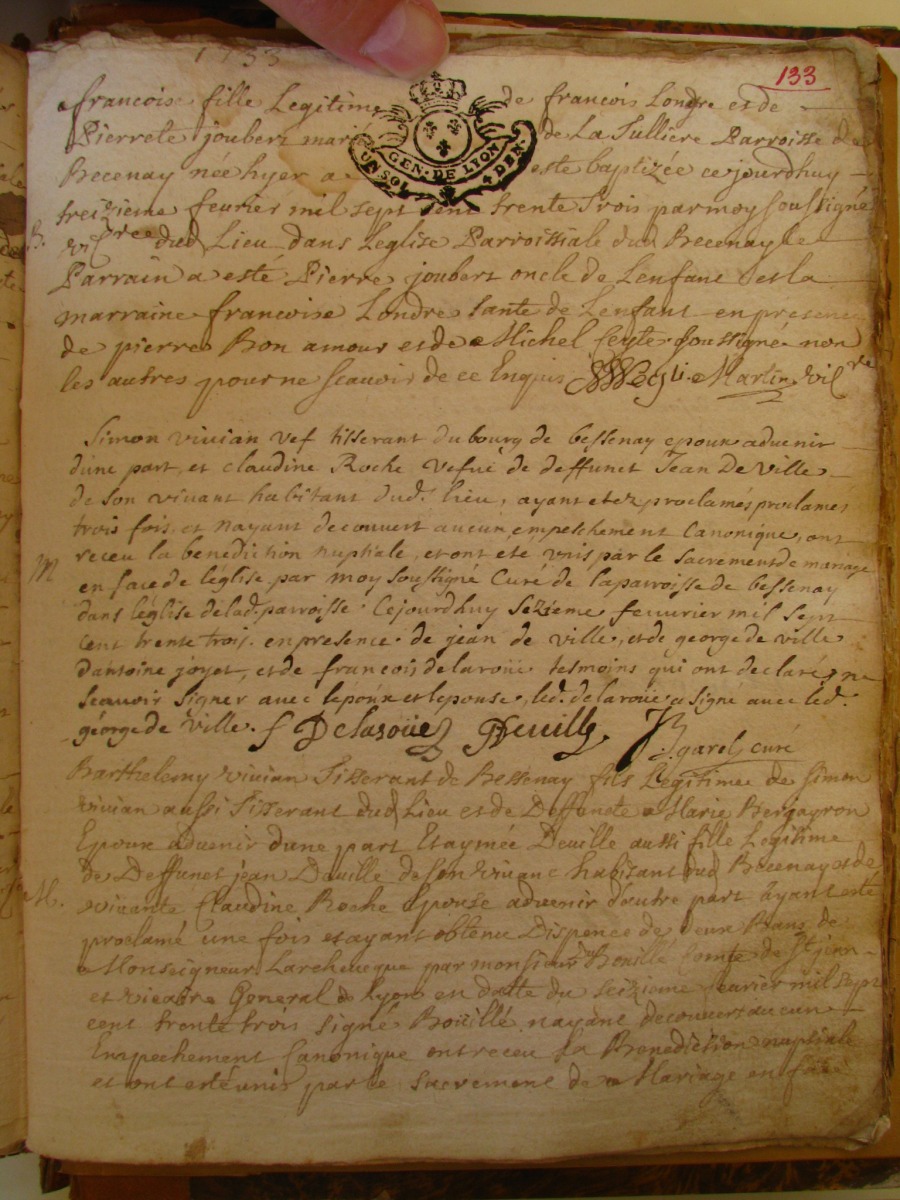 1733
133
francoise fille Legitime de francois Londre et de
Pierrete joubert mari de La Tulliere Parroisse de
Becenay née hyer a este baptizée cejourdhuy
GEN. DE LYON
UN SOL 4 DEN.
treizieme feurier mil sept sent trente trois par moy soussigné
B.
vic.re dud Lieu dans Leglise Parroissiale dud Becenay le
Parrain a esté Pierre joubert oncle de Lenfant et la
marraine francoise Londre tante de Lenfant en presence
de pierre Bon amour et de Michel soussigné non
les autres pour ne scauoir de ce Enquis Martin vic.re
Simon vivian vef tisserant du bourg de bessenay epoux advenir
dune part, et claudine Roche vefue de deffunct Jean De ville
de son vivant habitant dud. lieu, ayant etez proclamés proclamés
trois fois, et nayant decouvert aucun empeschement Canonique, ont
receu la benediction nuptiale, et ont ete vnis par le sacrement de mariage
M
en face de léglise par moy soussigné Curé de la parroisse de bessenay
dans léglise de lad. parroisse. Cejourdhuy sezieme feuurier mil sept
cent trente trois. en presence de jean de ville, et de george de ville
dantoine joyet, et de francois delaroüe tesmoins qui ont declaré ne
scauoir signer avec lepoux et lepouse, led. delaroüe a signé avec led.
géorge de ville. f Delaroüe GDeuille
garel curé
Barthelemy vivian Tisserant de Bessenay fils Legitime de simon
vivian aussi Tisserant dud Lieu et de Deffuncte Marie Bergayron
Epoux aduenir dune part Et aymée Deuille aussi fille Legitime
de Deffunct jean Deuille de son viuant habitant dud Becenay et de
M.
viuante Claudine Roche epouse aduenir d'autre part ayant esté
proclamé une fois et ayant obtenu Dispence de deux Bans de
Monseigneur Larcheueque par monsieur Boüillé Comte de St jean
et vicaire General de Lyon en datte du seizieme feurier mil sept
cent trente trois signé Boüillé nayant decouuert aucun
Empechement Canonique ont receu la Benediction nuptiale
et ont esté unis par le sacrement de Mariage en face